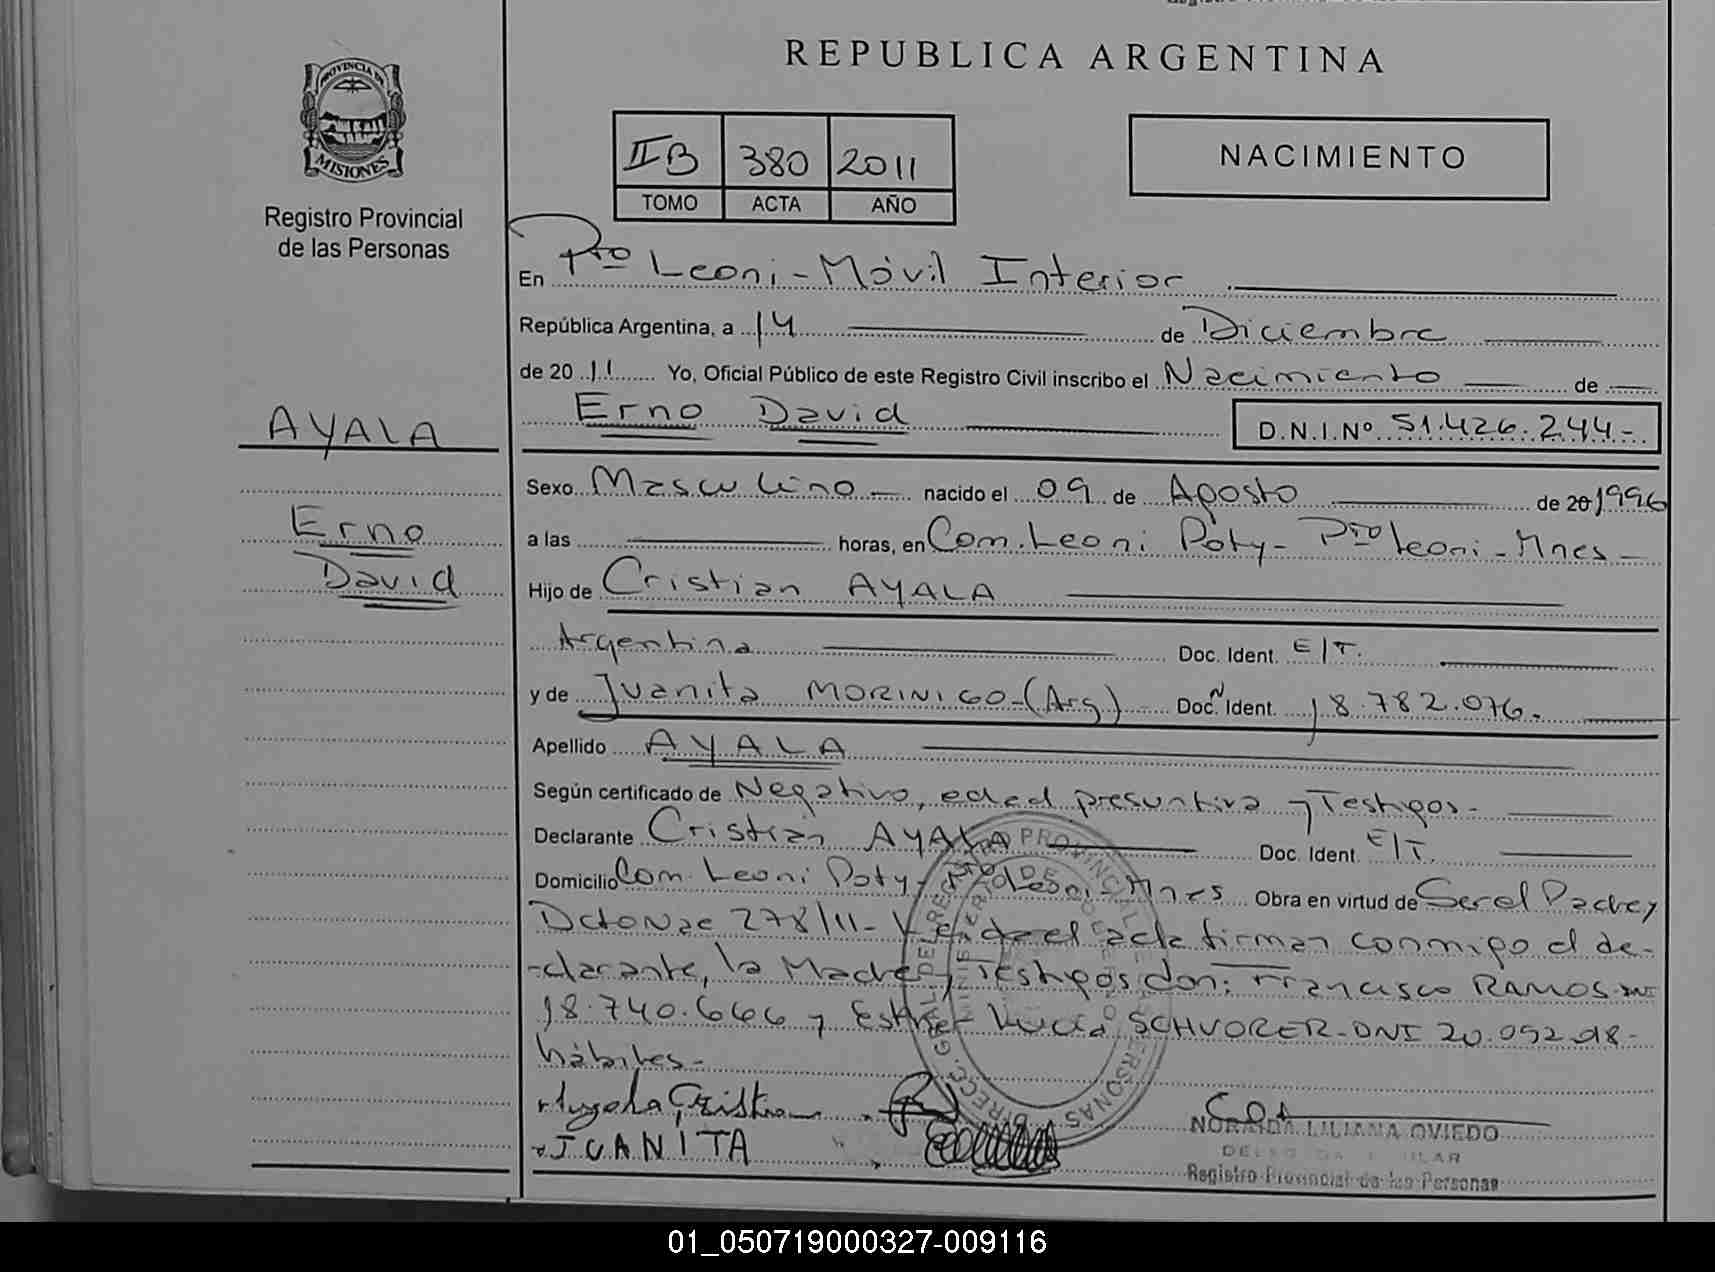 REPUBLICA ARGENTINA
PROVINCIA DE
MISIONES
Registro Provincial
de las Personas
IIB 380 2011
TOMO ACTA AÑO
NACIMIENTO
En Pto Leoni - Móvil Interior
República Argentina, a 14 de Diciembre
de 20 11 Yo, Oficial Público de este Registro Civil inscribo el Nacimiento de
Erno David
D.N.I.Nº 51.426.244-
AYALA
Erno
David
Sexo Masculino nacido el 09 de Agosto de 20 1996
a las horas, en Com. Leoni Poty - Pto Leoni - Mnes -
Hijo de Cristian AYALA
Argentina Doc. Ident. E/T.
y de Juanita MORINIGO - (Arg) Doc. Ident. 18.782.076.
Apellido AYALA
Según certificado de Negativo, edad presuntiva y Testigos -
Declarante Cristian AYALA Doc. Ident. E/T.
Domicilio Com. Leoni Poty - Pto Leoni - Mnes Obra en virtud de Ser el Padre y
278/11 - el acta firman conmigo el de-
-clarante, la Madre y Testigos don: Francisco RAMOS
18.740.666 y Esther Lucia SCHVORER - DNI 20.092.
hábiles -
Cristian
JUANITA
NORAIDA LILIANA OVIEDO
Registro Provincial de las Personas
01_050719000327-009116